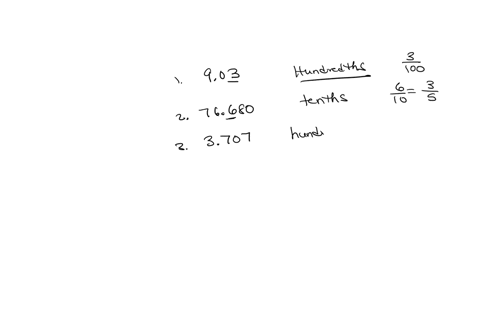 1. 9.03 Hundredths 3/100
2. 76.680 tenths 6/10 = 3/5
3. 3.707 hund